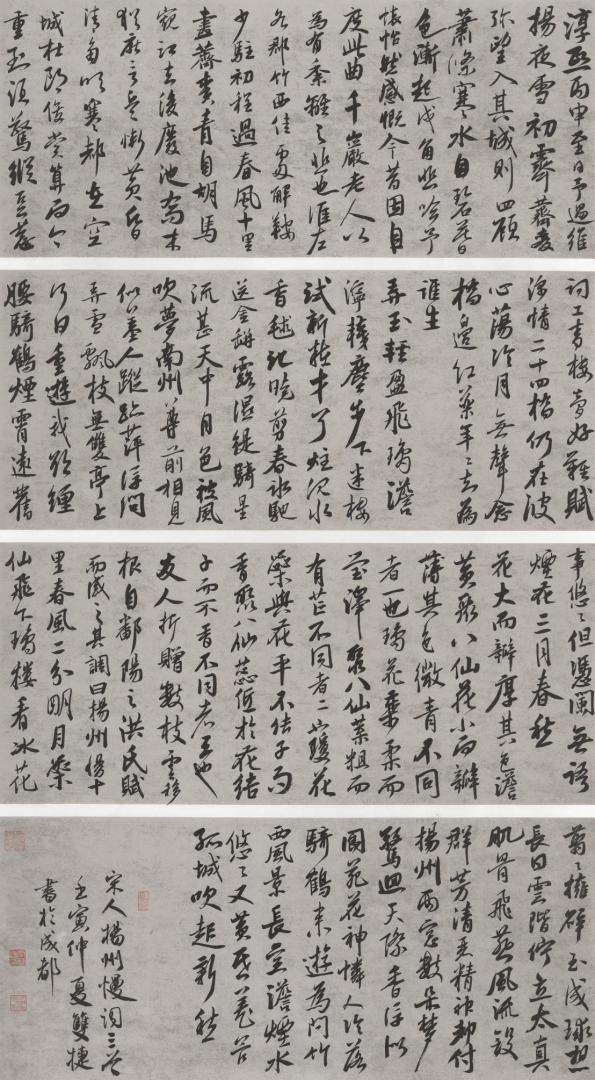 淳熙丙申至日予過維
揚夜雪初霽薺麥
彌望入其城則四顧
蕭條寒水自碧暮
色漸起戍角悲吟予
懷愴然感慨今昔因自
度此曲千巖老人以
為有黍離之悲也淮左
名都竹西佳處解鞍
少駐初程過春風十里
盡薺麥青自胡馬
窺江去後廢池喬木
猶厭言兵漸黃昏
清角吹寒都在空
城杜郎俊賞算而今
重到須驚縱豆蔻
詞工青樓夢好難賦
深情二十四橋仍在波
心蕩冷月無聲念
橋邊紅藥年々知為
誰生
弄玉輕盈飛瓊澹
濘襪塵步下迷樓
試新妝才了炷沉水
香毬記曉剪春冰馳
送金瓶露濕緹騎星
流甚天中月色被風
吹夢南州尊前相見
似羞人蹤跡萍浮問
弄雪飄枝無雙亭上
何日重遊我欲纏
腰騎鶴煙霄遠舊
事悠々但憑闌無語
煙花三月春愁
花大而瓣厚其色澹
黃聚八仙花小而瓣
薄其色微青不同
者一也瓊花葉柔而
瑩澤聚八仙葉粗而
有芒不同者二也瓊花
蕊與花平不結子而
香聚八仙蕊低於花結
子而不香不同者三也
友人折贈數枝雲移
根自鄱陽之洪氏賦
而感之其調曰揚州慢十
里春風二分明月蕊
仙飛下瓊樓看冰花
翦々擁碎玉成毬想
長日雲階佇立太真
肌骨飛燕風流斂
群芳清麗精神都付
揚州雨窗數朵夢
驚迴天際香浮似
閬苑花神憐人冷落
騎鶴來遊為問竹
西風景長空澹煙水
悠々又黃昏羌管
孤城吹起新愁
宋人揚州慢詞三首
壬寅仲夏雙捷
書於成都